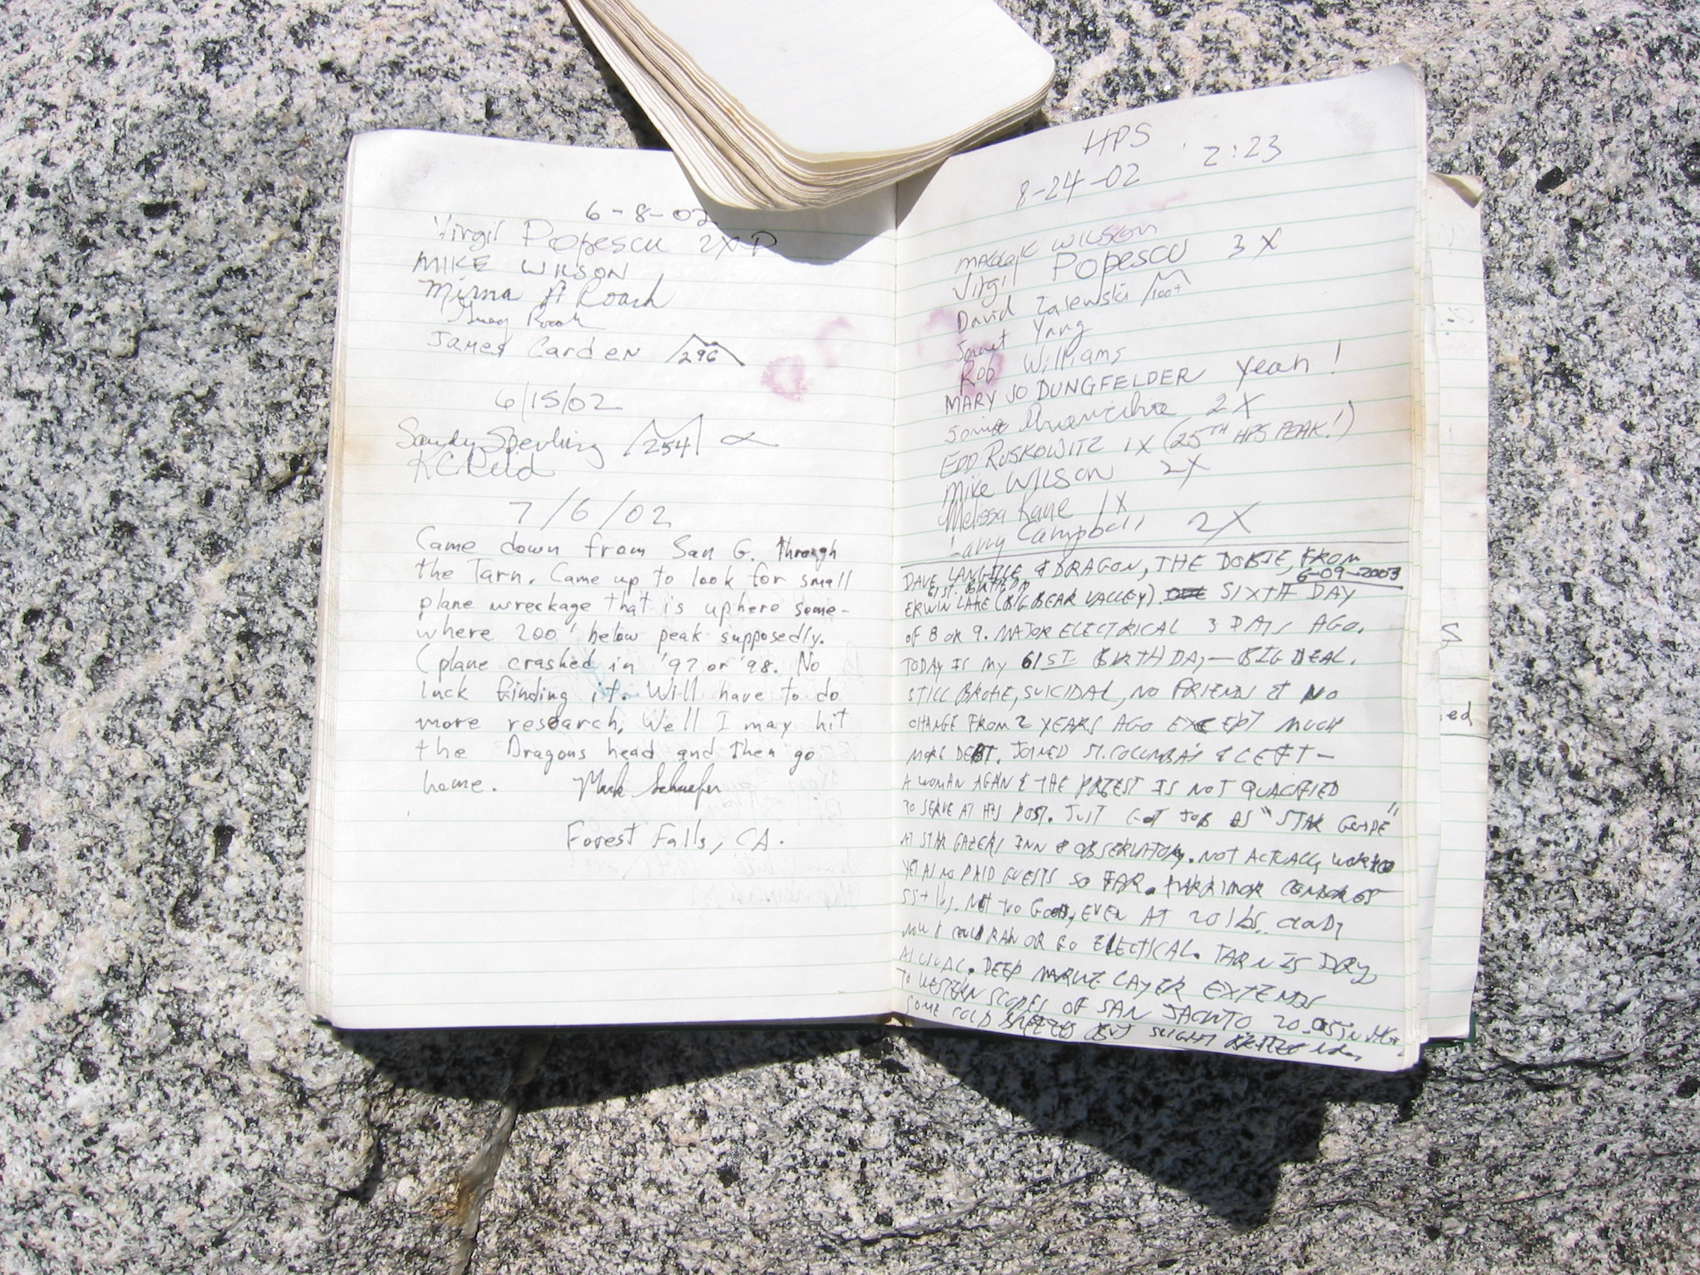 6-8-02
Virgil Popescu 2X P
MIKE WILSON
Mirna A Roach
Roach
James Carden 296
6/15/02
Sandy Sperling 254
KC Reid
7/6/02
Came down from San G. through
the Tarn. Came up to look for small
plane wreckage that is up here some-
where 200' below peak supposedly.
(plane crashed in '97 or '98. No
luck finding it. Will have to do
more research. Well I may hit
the Dragons head and then go
home. Mark Schaefer
Forest Falls, CA.
HPS
8-24-02 2:23
WILSON
Virgil Popescu 3X
David Zalewski 100+
Yang
Rob Williams
MARY JO DUNGFELDER Yeah!
2X
EDD RUSKOWITZ 1X (25TH HPS PEAK!)
Mike WILSON 2X
Melissa Kane 1X
Larry Campbell 2X
DAVE & DRAGON, THE DOBIE, FROM
6-09-2003
ERWIN LAKE (BIG BEAR VALLEY). SIXTH DAY
OF 8 OR 9. MAJOR ELECTRICAL 3 DAYS AGO.
TODAY IS MY 61ST BIRTHDAY — BIG DEAL.
STILL BROKE, SUICIDAL, NO FRIENDS & NO
CHANGE FROM 2 YEARS AGO EXCEPT MUCH
MORE DEBT. JOINED ST. COLUMBA'S & LEFT —
A WOMAN AGAIN & THE PRIEST IS NOT QUALIFIED
TO SERVE AT HIS POST. JUST GOT JOB AS "STAR GUIDE"
AT STAR GAZERS INN & OBSERVATORY. NOT ACTUALLY WORKED
YET AS NO PAID GUESTS SO FAR.
55+ lbs. NOT TOO GOOD, EVEN AT 20 lbs. CLOUDY
OR ELECTICAL. TARN IS DRY
AS USUAL. DEEP MARINE LAYER EXTENDS
TO WESTERN SLOPES OF SAN JACINTO
SOME COLD BREEZES BUT SLIGHT